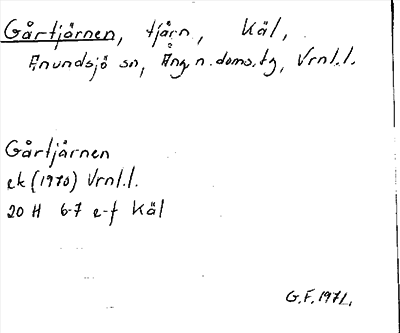 Gårtjärnen, tjärn, Käl,
Anundsjö sn, Ång. n. doms.tg, Vrnl.l.
Gårtjärnen
ek (1970) Vrnl.l.
20 H 6-7 e-f Käl
G.F. 1971.